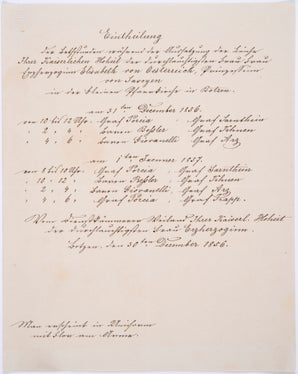 Eintheilung
der Bethstunden während der Aussetzung der Leiche
Ihrer Kaiserlichen Hoheit der durchlauchtigsten Frau Frau
Erzherzogin Elisabeth von Oesterreich, Prinzessinn
von Savoyen
in der kleinen Pfarrkirche in Botzen.
am 31ten December 1856.
von 10 bis 12 Uhr. Graf Porcia . Graf Sarnthein
" 2 " 4 " Baron Graf
" 4 " 6 " Baron Giovanelli Graf Arz
am 1ten Jenner 1857.
von 8 bis 10 Uhr. Graf Porcia . Graf Sarnthein
" 10 " 12 " Baron . Graf
" 2 " 4 " Baron Giovanelli . Graf Arz
" 4 " 6 " Graf Porcia . Graf Trapp.
Vom Dienstkämmerer Weiland Ihrer Kaiserl. Hoheit
der durchlauchtigsten Frau Erzherzoginn.
Botzen, den 30ten December 1856.
Man erscheint in Uniform
mit Flor am Arme.